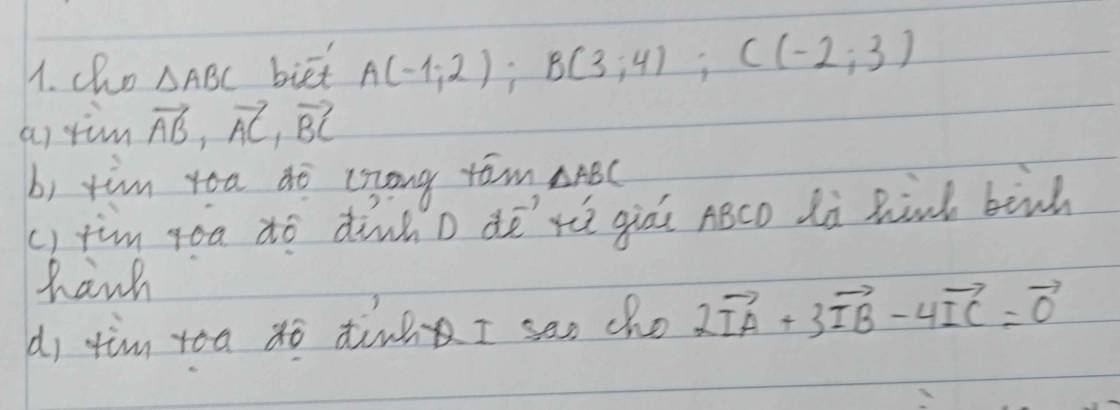 1. Cho ΔABC biết A(-1;2); B(3;4); C(-2;3)
a) tìm \overrightarrow{AB}, \overrightarrow{AC}, \overrightarrow{BC}
b) tìm tọa độ trọng tâm ΔABC
c) tìm tọa độ đỉnh D để tứ giác ABCD là hình bình
hành
d) tìm tọa độ đỉnh I sao cho 2\overrightarrow{IA} + 3\overrightarrow{IB} - 4\overrightarrow{IC} = \overrightarrow{0}